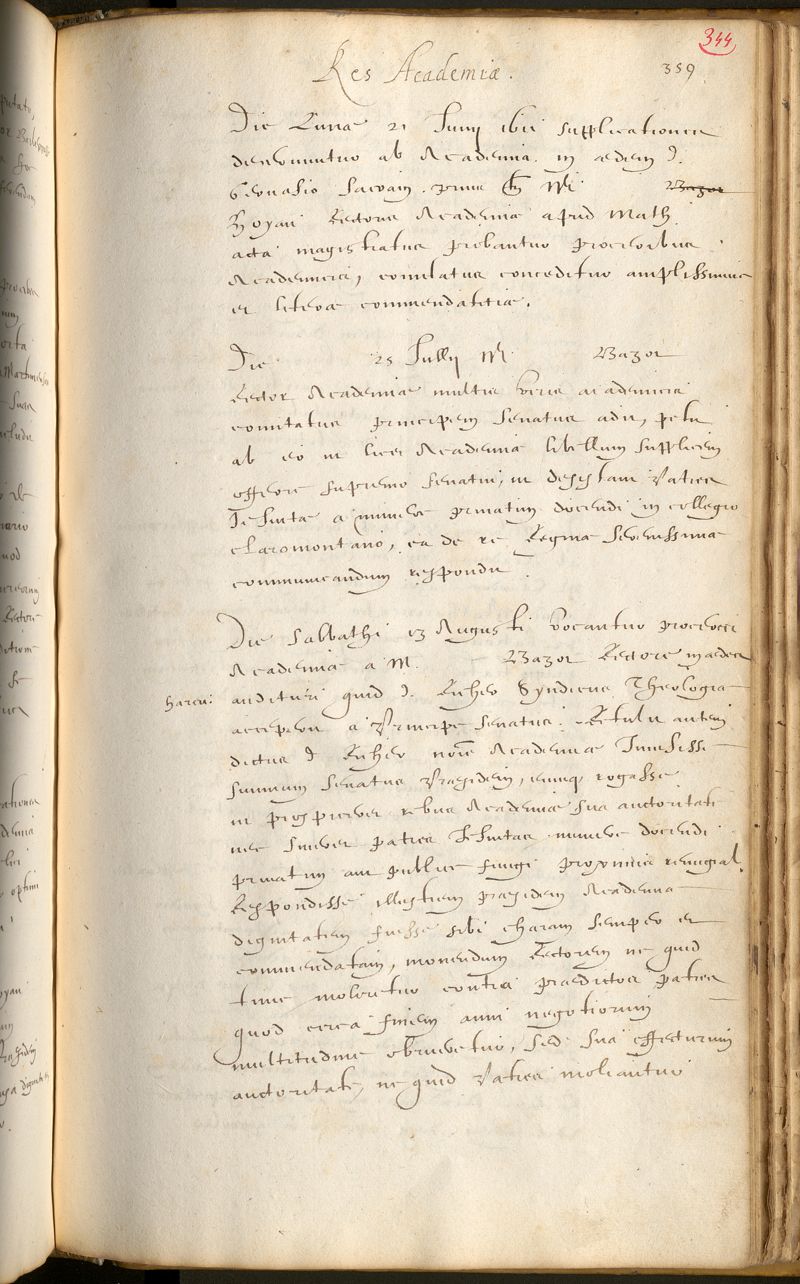 344
Res Academiæ. 359
Die Lunæ 21 Junij ibit supplicationis
ab Academia in ædem D.
Gervasio
Lectoris Academiæ apud Math.
acta magistratus probantur proceribus
Academicis, comitatus conceditur amplissimus
et literæ commendatitiæ.
Die 25 Jullij Mr Bazor
Rector Academiæ multis viris academicis
comitatus principem Senatus adit, petit
ab eo ut liceat Academiæ libellum supplicem
offerre supremo senatui, ut desistant Patres
Jesuitæ a munere privatim docendi in collegio
claromontano, ea de re Reginæ Serenissimæ
communicandum respondit.
Die Sabbathi 13 Augusti vocantur proceres
Academiæ a M. Bazor Rectore in ædes
harcu: audituri quid D. Richer Syndicus Theologiæ
acceperit a Principe Senatus. Retulit autem
dictus D Richer noīe Academiæ Invisisse
summum Senatus Præsidem, eumq rogasse
ut prospiceret rebus Academiæ sua auctoritate
nec sineret patres Jesuitas munere docendi
privatim aut publice fungi proximis remigial.
Respondisse illustrem præsidem Academiæ
dignitatem fuisse sibi charam semper et
commendatam, monendum Rectorem ne quid
tunc moliretur contra prædictos patres
quod circa finem anni negotiorum
multitudine obrueretur, sed sua effecturum
auctoritate, ne quid Patres moliantur